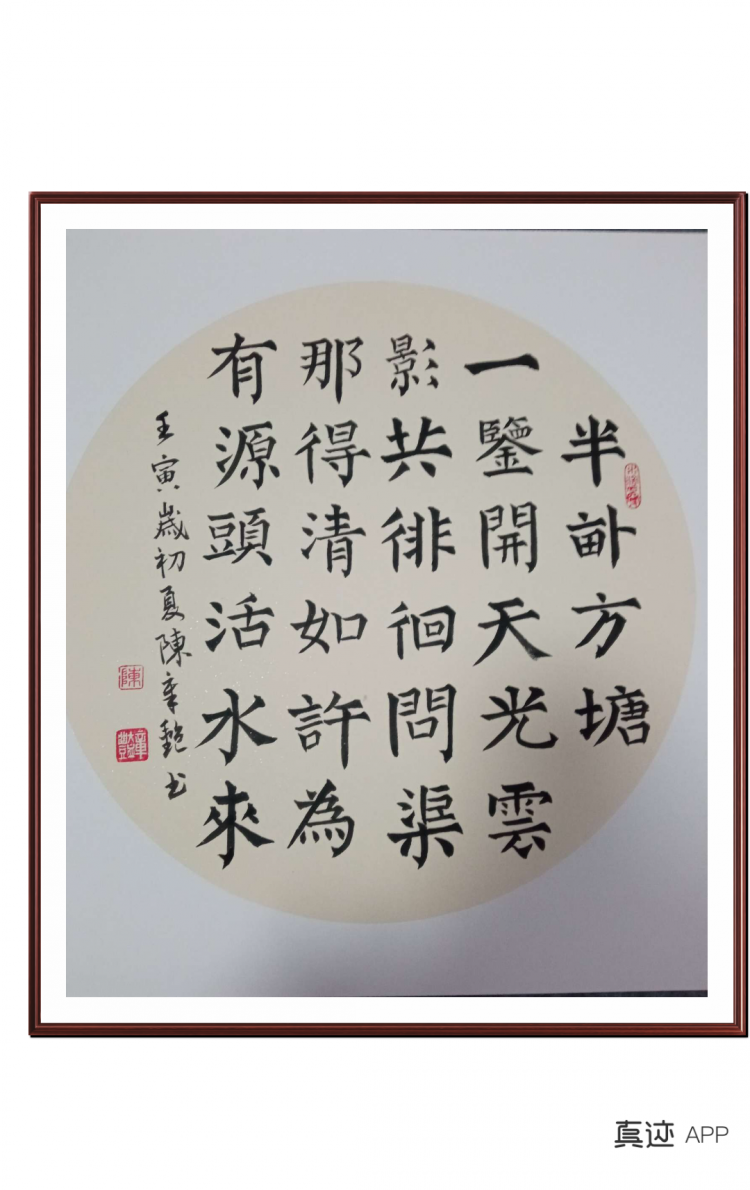 半畝方塘
一鑒開天光雲
影共徘徊問渠
那得清如許為
有源頭活水來
壬寅歲初夏陳章艶书
陳
真迹 APP